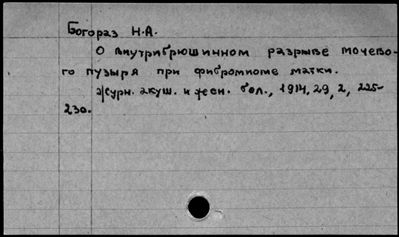 Богораз Н.А.
О внутрибрюшинном разрыве мочево-
го пузыря при фибромиоме матки.
Журн. акуш. и женск. бол., 1914, 29, 2, 225-
230.